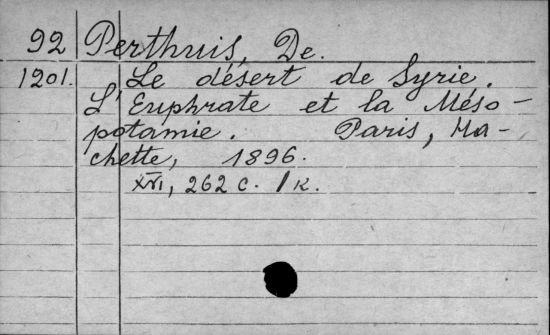 92 Perthuis, De.
1201. Le désert de Syrie.
L'Euphrate et la Méso-
potamie. Paris, Ha-
chette, 1896.
XVI, 262 c. 1 к.